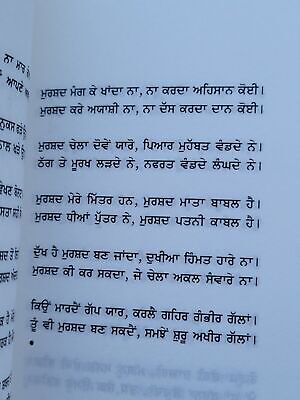 ਮੁਰਸ਼ਦ ਮੰਗ ਕੇ ਖਾਂਦਾ ਨਾ, ਨਾ ਕਰਦਾ ਅਹਿਸਾਨ ਕੋਈ।
ਮੁਰਸ਼ਦ ਕਰੇ ਅਯਾਸ਼ੀ ਨਾ, ਨਾ ਦੱਸ ਕਰਦਾ ਦਾਨ ਕੋਈ।
ਮੁਰਸ਼ਦ ਚੇਲਾ ਦੋਵੇਂ ਯਾਰੋ, ਪਿਆਰ ਮੁਹੱਬਤ ਵੰਡਦੇ ਨੇ।
ਠੱਗ ਤੇ ਮੂਰਖ ਲੜਦੇ ਨੇ, ਨਫਰਤ ਵੰਡਦੇ ਲੰਘਦੇ ਨੇ।
ਮੁਰਸ਼ਦ ਮੇਰੇ ਮਿੱਤਰ ਹਨ, ਮੁਰਸ਼ਦ ਮਾਤਾ ਬਾਬਲ ਹੈ।
ਮੁਰਸ਼ਦ ਧੀਆਂ ਪੁੱਤਰ ਨੇ, ਮੁਰਸ਼ਦ ਪਤਨੀ ਕਾਬਲ ਹੈ।
ਦੁੱਖ ਹੈ ਮੁਰਸ਼ਦ ਬਣ ਜਾਂਦਾ, ਦੁਖੀਆ ਹਿੰਮਤ ਹਾਰੇ ਨਾ।
ਮੁਰਸ਼ਦ ਕੀ ਕਰ ਸਕਦਾ, ਜੇ ਚੇਲਾ ਅਕਲ ਸੰਵਾਰੇ ਨਾ।
ਕਿਉਂ ਮਾਰਦੈਂ ਗੱਪ ਯਾਰ, ਕਰਲੈ ਗਹਿਰ ਗੰਭੀਰ ਗੱਲਾਂ।
ਤੂੰ ਵੀ ਮੁਰਸ਼ਦ ਬਣ ਸਕਦੈਂ, ਸਮਝੇਂ ਸ਼ੁਰੂ ਅਖੀਰ ਗੱਲਾਂ।